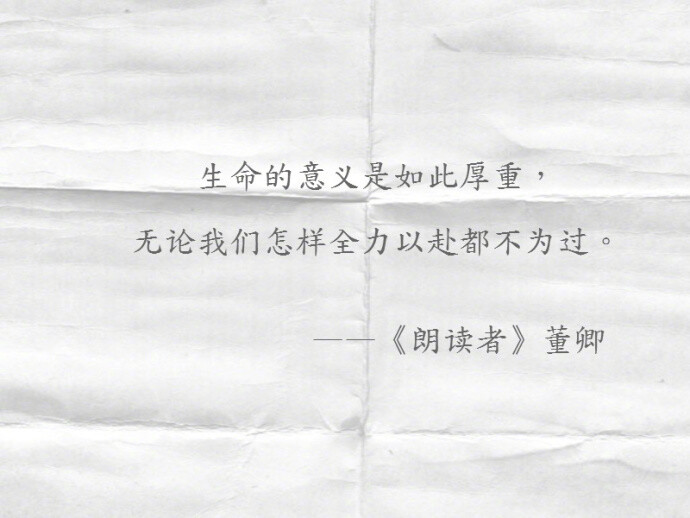 生命的意义是如此厚重，
无论我们怎样全力以赴都不为过。
——《朗读者》董卿